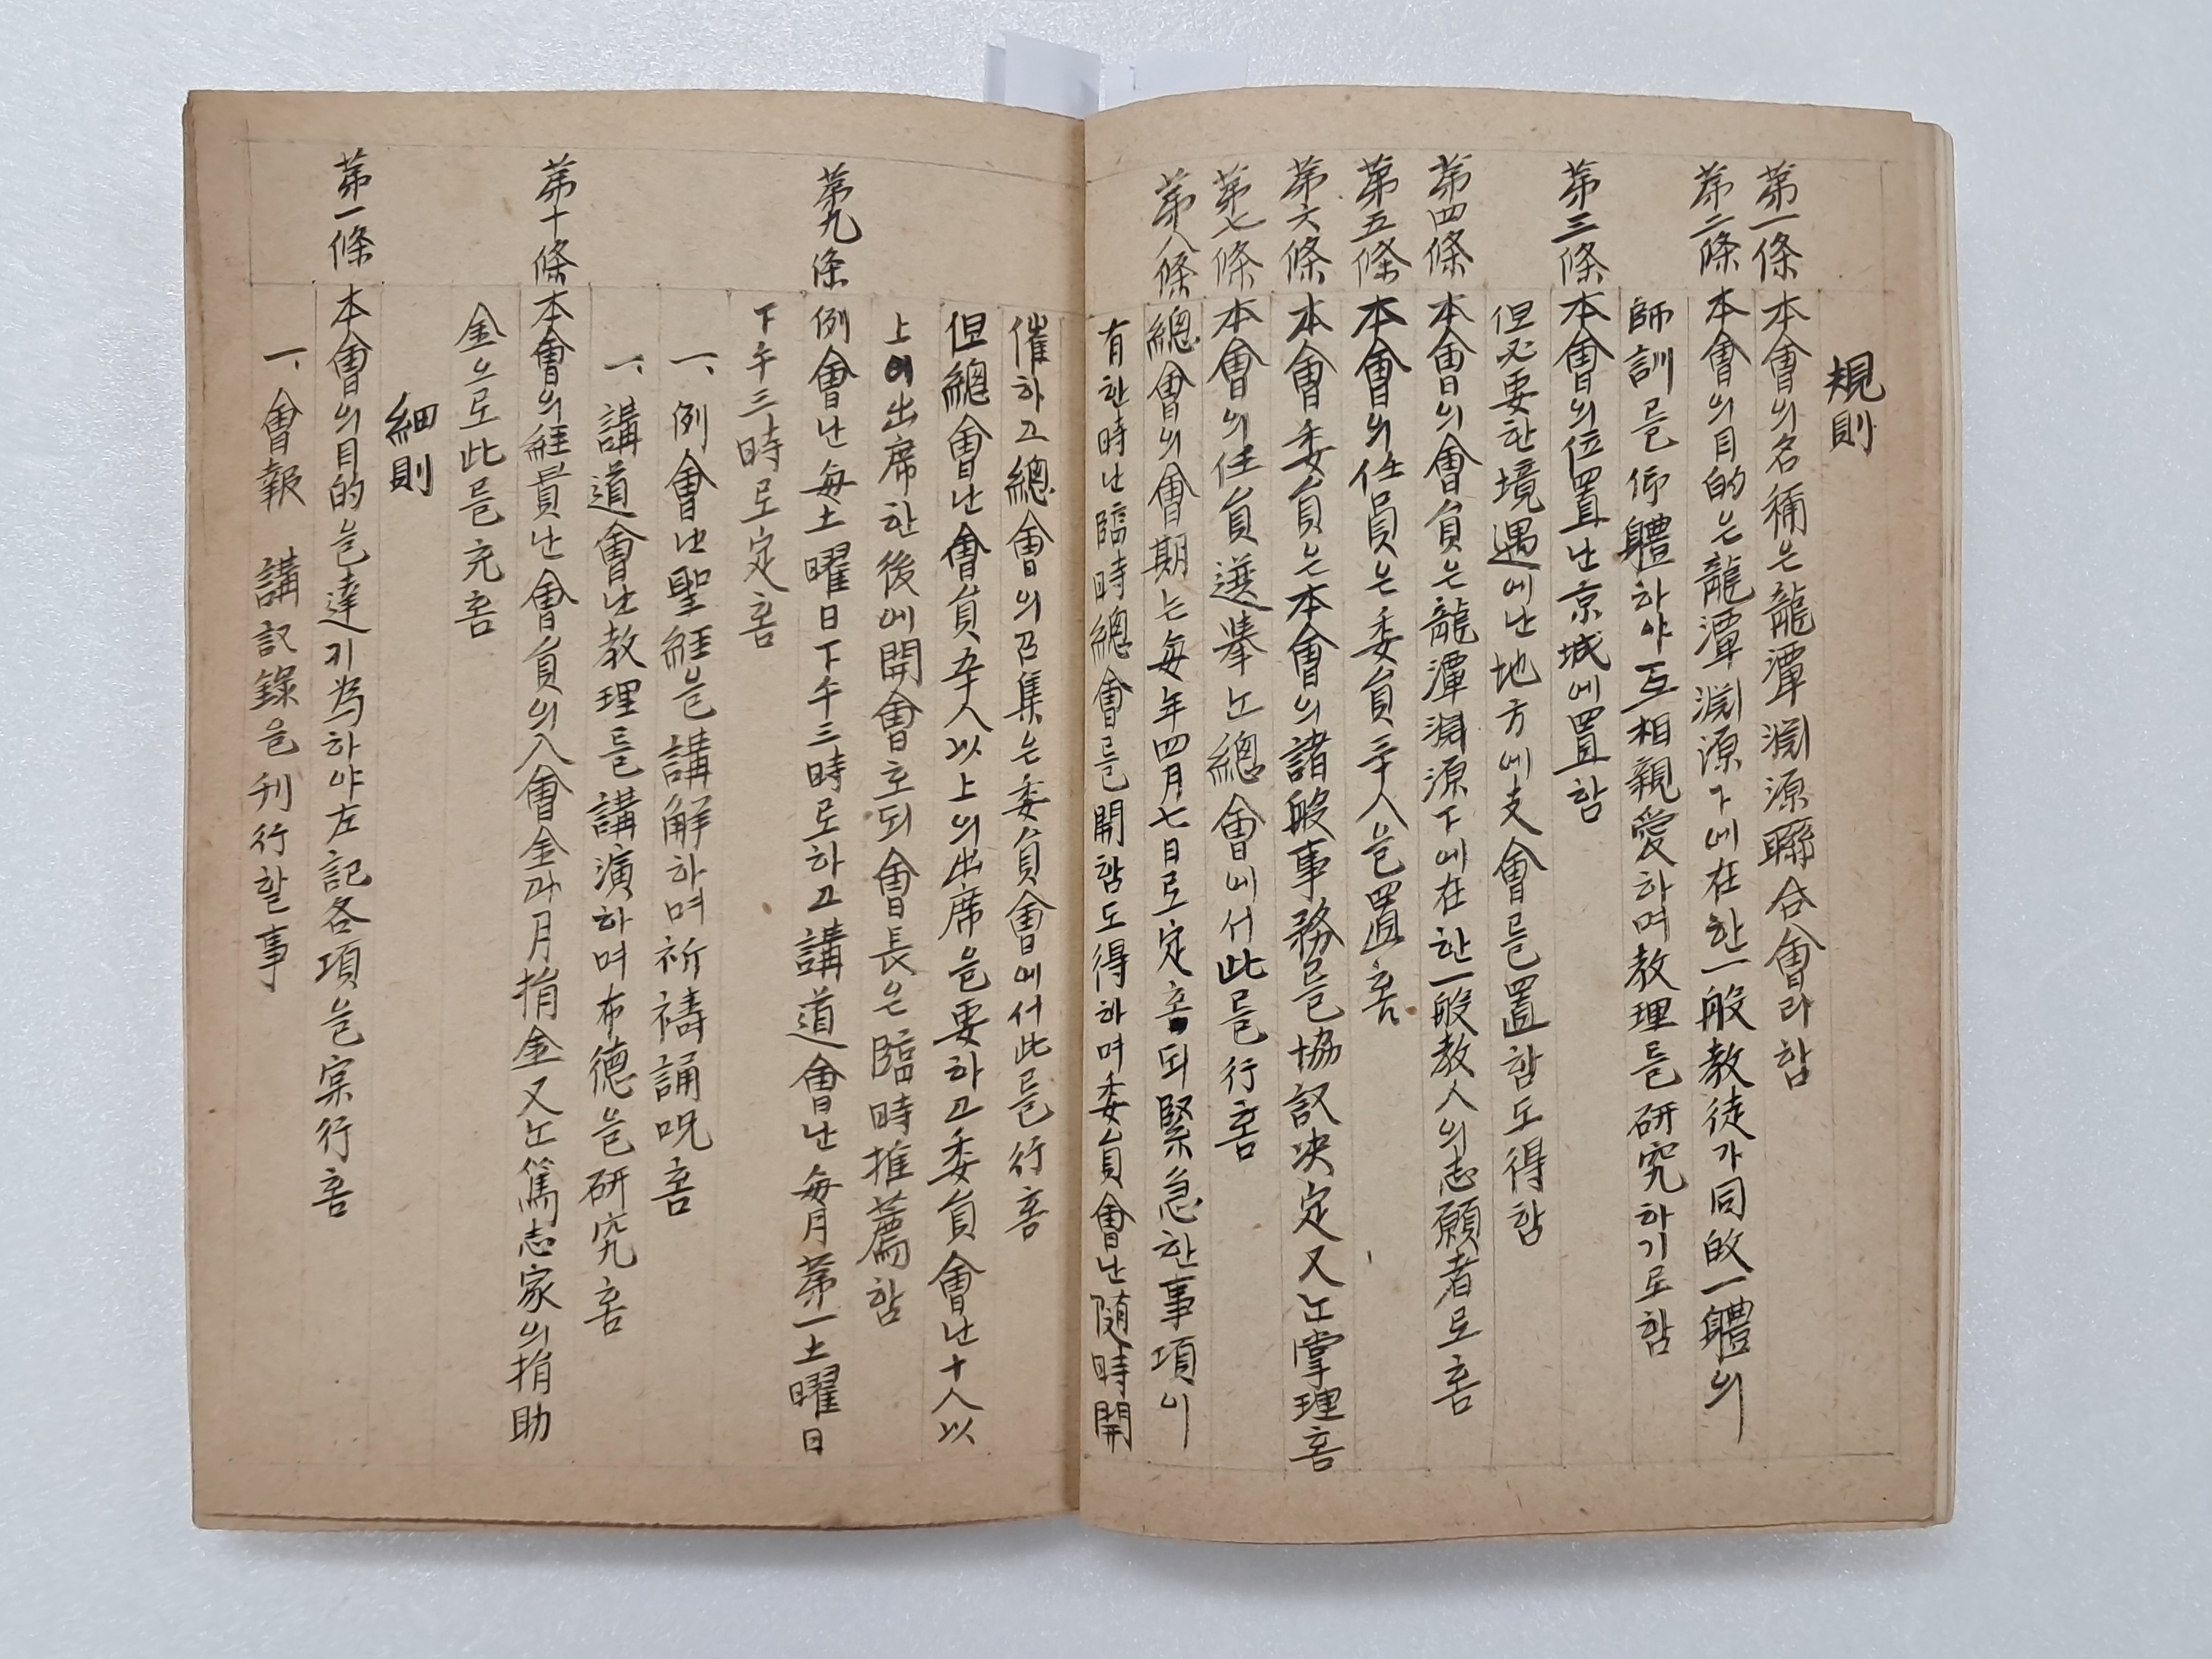 規則
第一條 本會의名稱은龍潭淵源聯合會라함
第二條 本會의目的은龍潭淵源下에在한一般教徒가同政一體의
師訓을仰體하야互相親愛하며教理를研究하기로함
第三條 本會의位置난京城에置함
但必要한境遇에난地方에支會를置함도得함
第四條 本會의會員은龍潭淵源下에在한一般教人의志願者로홈
第五條 本會의任員은委員三十人을置홈
第六條 本會委員은本會의諸般事務를協議決定又난掌理홈
第七條 本會의任員選擧난總會에서此를行홈
第八條 總會의會期는每年四月七日로定홈되緊急한事項이
有한時난臨時總會를開함도得하며委員會난隨時開
催하고總會의召集은委員會에서此를行홈
但總會난會員五十人以上의出席을要하고委員會난十人以
上이出席한後에開會호되會長은臨時推薦함
第九條 例會난每土曜日下午三時로하고講道會난每月第一土曜日
下午三時로定홈
一、例會난聖經을講解하며祈禱誦呪홈
一、講道會난教理를講演하며布德을研究홈
第十條 本會의經費난會員의入會金과月捐金又난篤志家의捐助
金으로此를充홈
細則
第一條 本會의目的을達키爲하야左記各項을實行홈
一、會報 講記錄을刊行할事